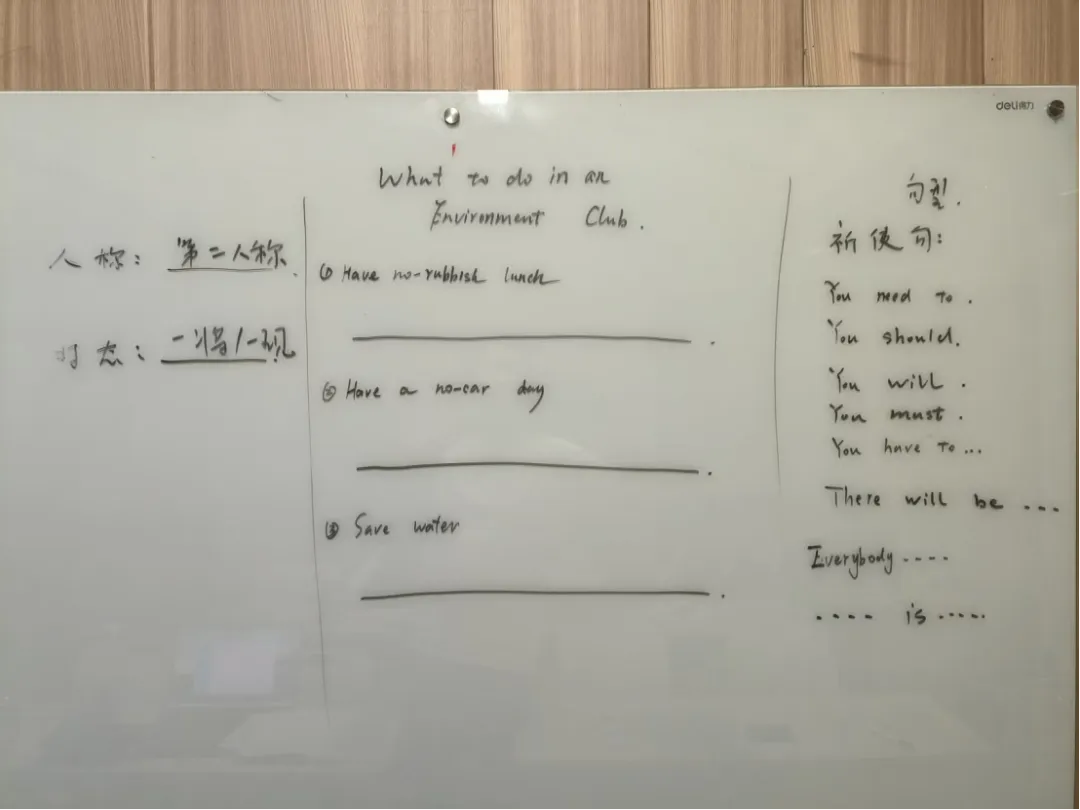 deli得力
What to do in an
Environment Club.
人称：第二人称.
时态：一将/一现
① Have no-rubbish lunch
② Have a no-car day
③ Save water
句型.
祈使句：
You need to.
You should.
You will.
You must.
You have to...
There will be ...
Everybody ....
.... is .....